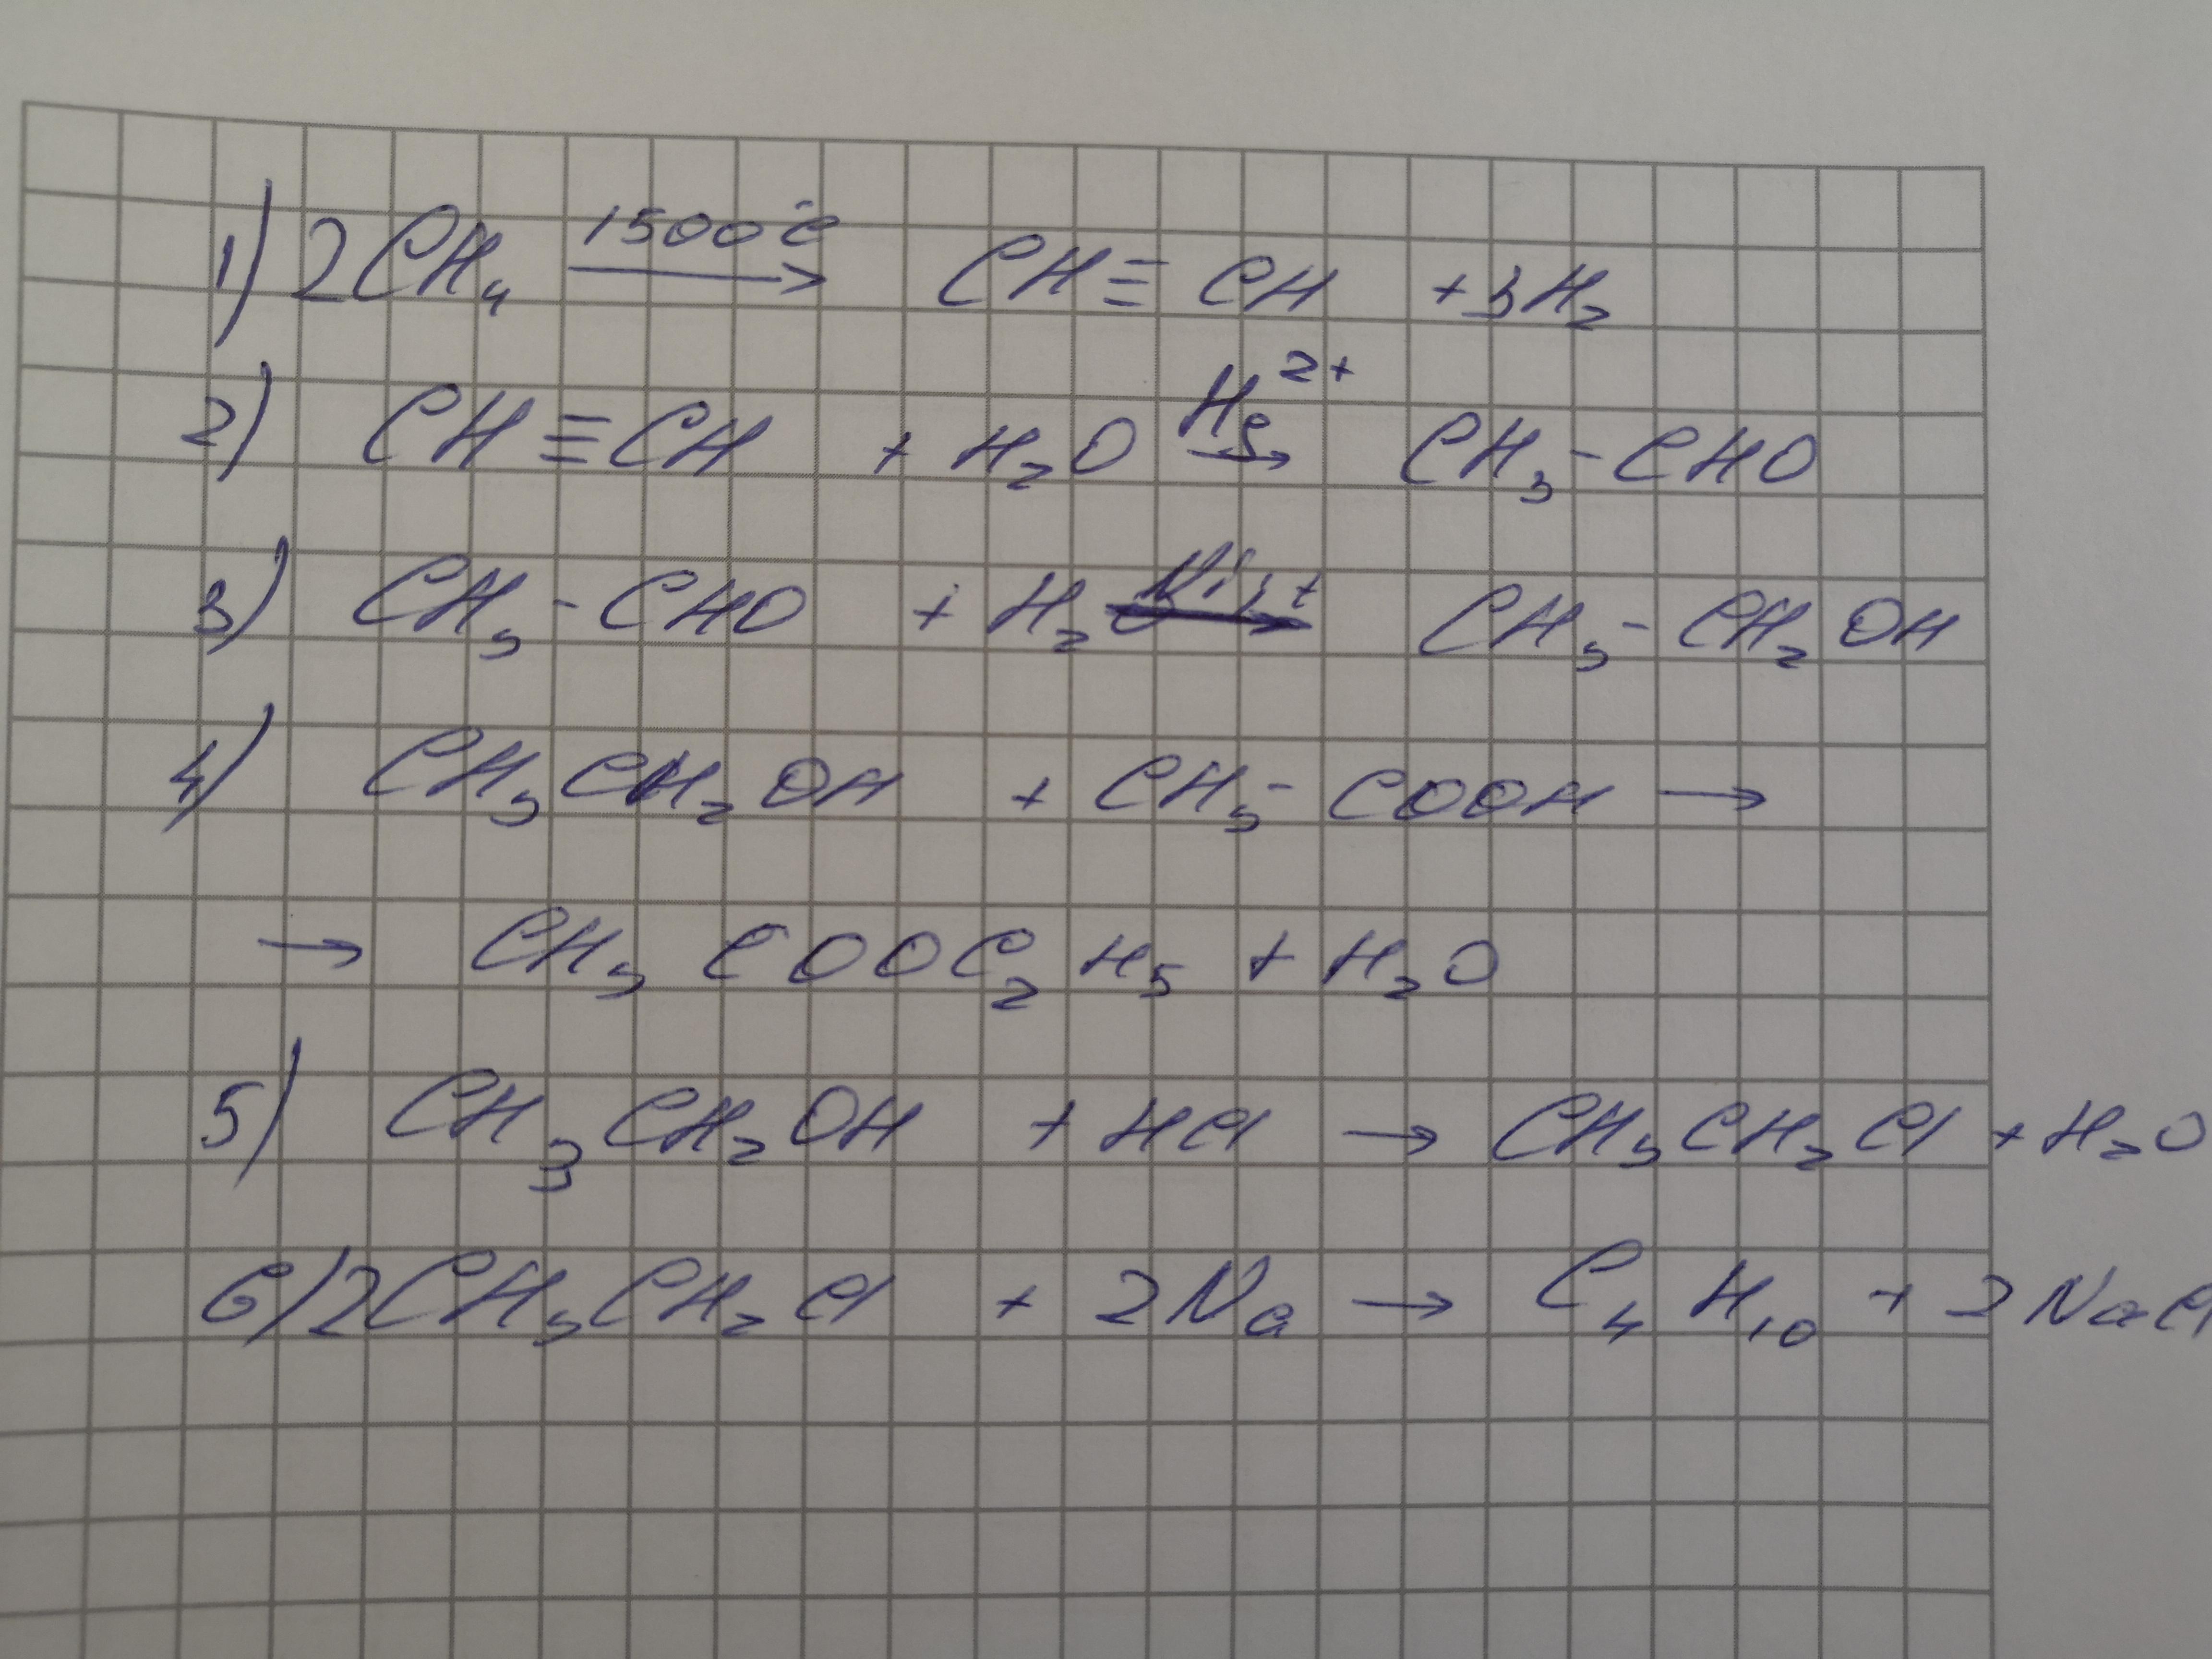 1) 2CH₄ —1500°C→ CH≡CH + 3H₂
2) CH≡CH + H₂O —Hg²⁺→ CH₃-CHO
3) CH₃-CHO + H₂ —Ni, t→ CH₃-CH₂OH
4) CH₃CH₂OH + CH₃-COOH →
→ CH₃COOC₂H₅ + H₂O
5) CH₃CH₂OH + HCl → CH₃CH₂Cl + H₂O
6) 2CH₃CH₂Cl + 2Na → C₄H₁₀ + 2NaCl